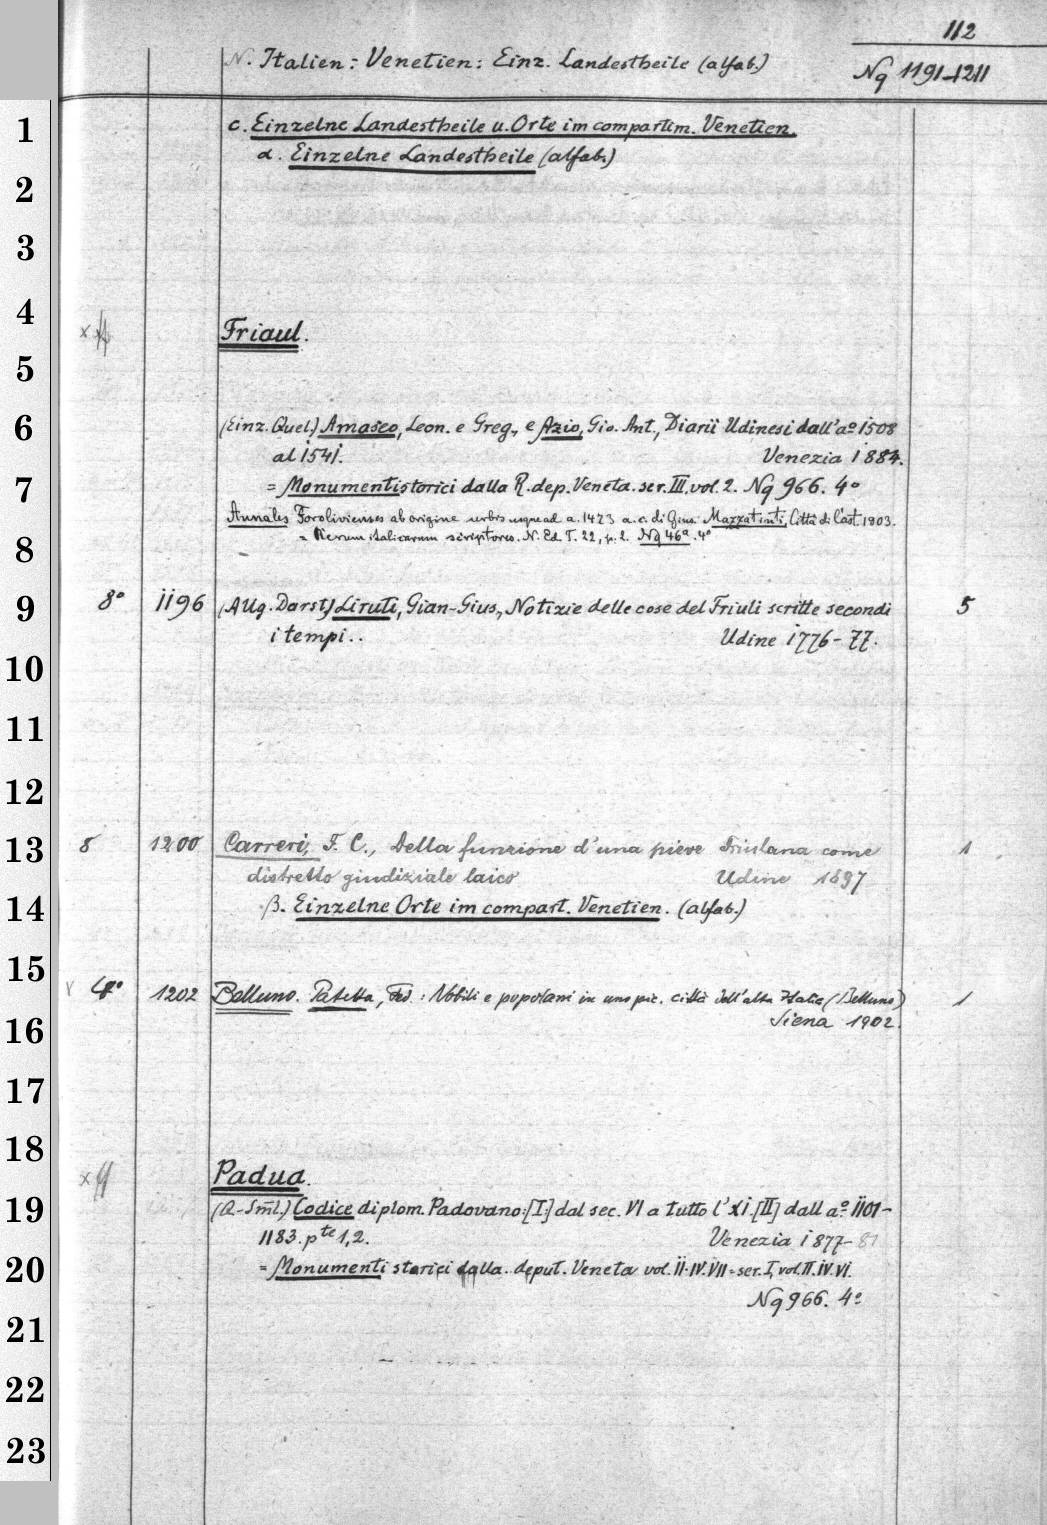 112
N. Italien: Venetien: Einz. Landestheile (alfab.)
Nq 1191-1211
1 c. Einzelne Landestheile u. Orte im compartim. Venetien.
α. Einzelne Landestheile (alfab.)
2
3
4
x Friaul.
5
6 (Einz. Quel.) Amaseo, Leon. e Greg., e Azio, Gio. Ant., Diarii Udinesi dall'aº 1508
al 1541. Venezia 1884.
7 = Monumenti storici dalla R. dep. Veneta. ser. III, vol. 2. Nq 966. 4º
Annales Forolivienses ab origine urbis usque ad a. 1473 a. c. di Gius. Mazzatinti, Città di Cast. 1903.
8 = Rerum italicarum scriptores. N. Ed. T. 22, p. 2. Nq 46ª. 4º
9 8º 1196 (Allg. Darst.) Liruti, Gian-Gius., Notizie delle cose del Friuli scritte secondi 5
i tempi.. Udine 1776-77.
10
11
12
13 8 1200 Carreri, F. C., Della funzione d'una pieve Friulana come 1
distretto giudiziale laico Udine 1897
14 β. Einzelne Orte im compart. Venetien. (alfab.)
15
4º 1202 Belluno. Patetta, Fed.: Nobili e popolani in una pic. città dell'alta Italia (Belluno) 1
16 Siena 1902.
17
18
x Padua.
19 (Q-Sml.) Codice diplom. Padovano: [I:] dal sec. VI a tutto l'XI. [II] dall aº 1101-
1183. pte 1,2. Venezia 1877-81
20 = Monumenti storici dalla deput. Veneta vol. II. IV. VII = ser. I, vol. II. IV. VI.
Nq 966. 4º
21
22
23